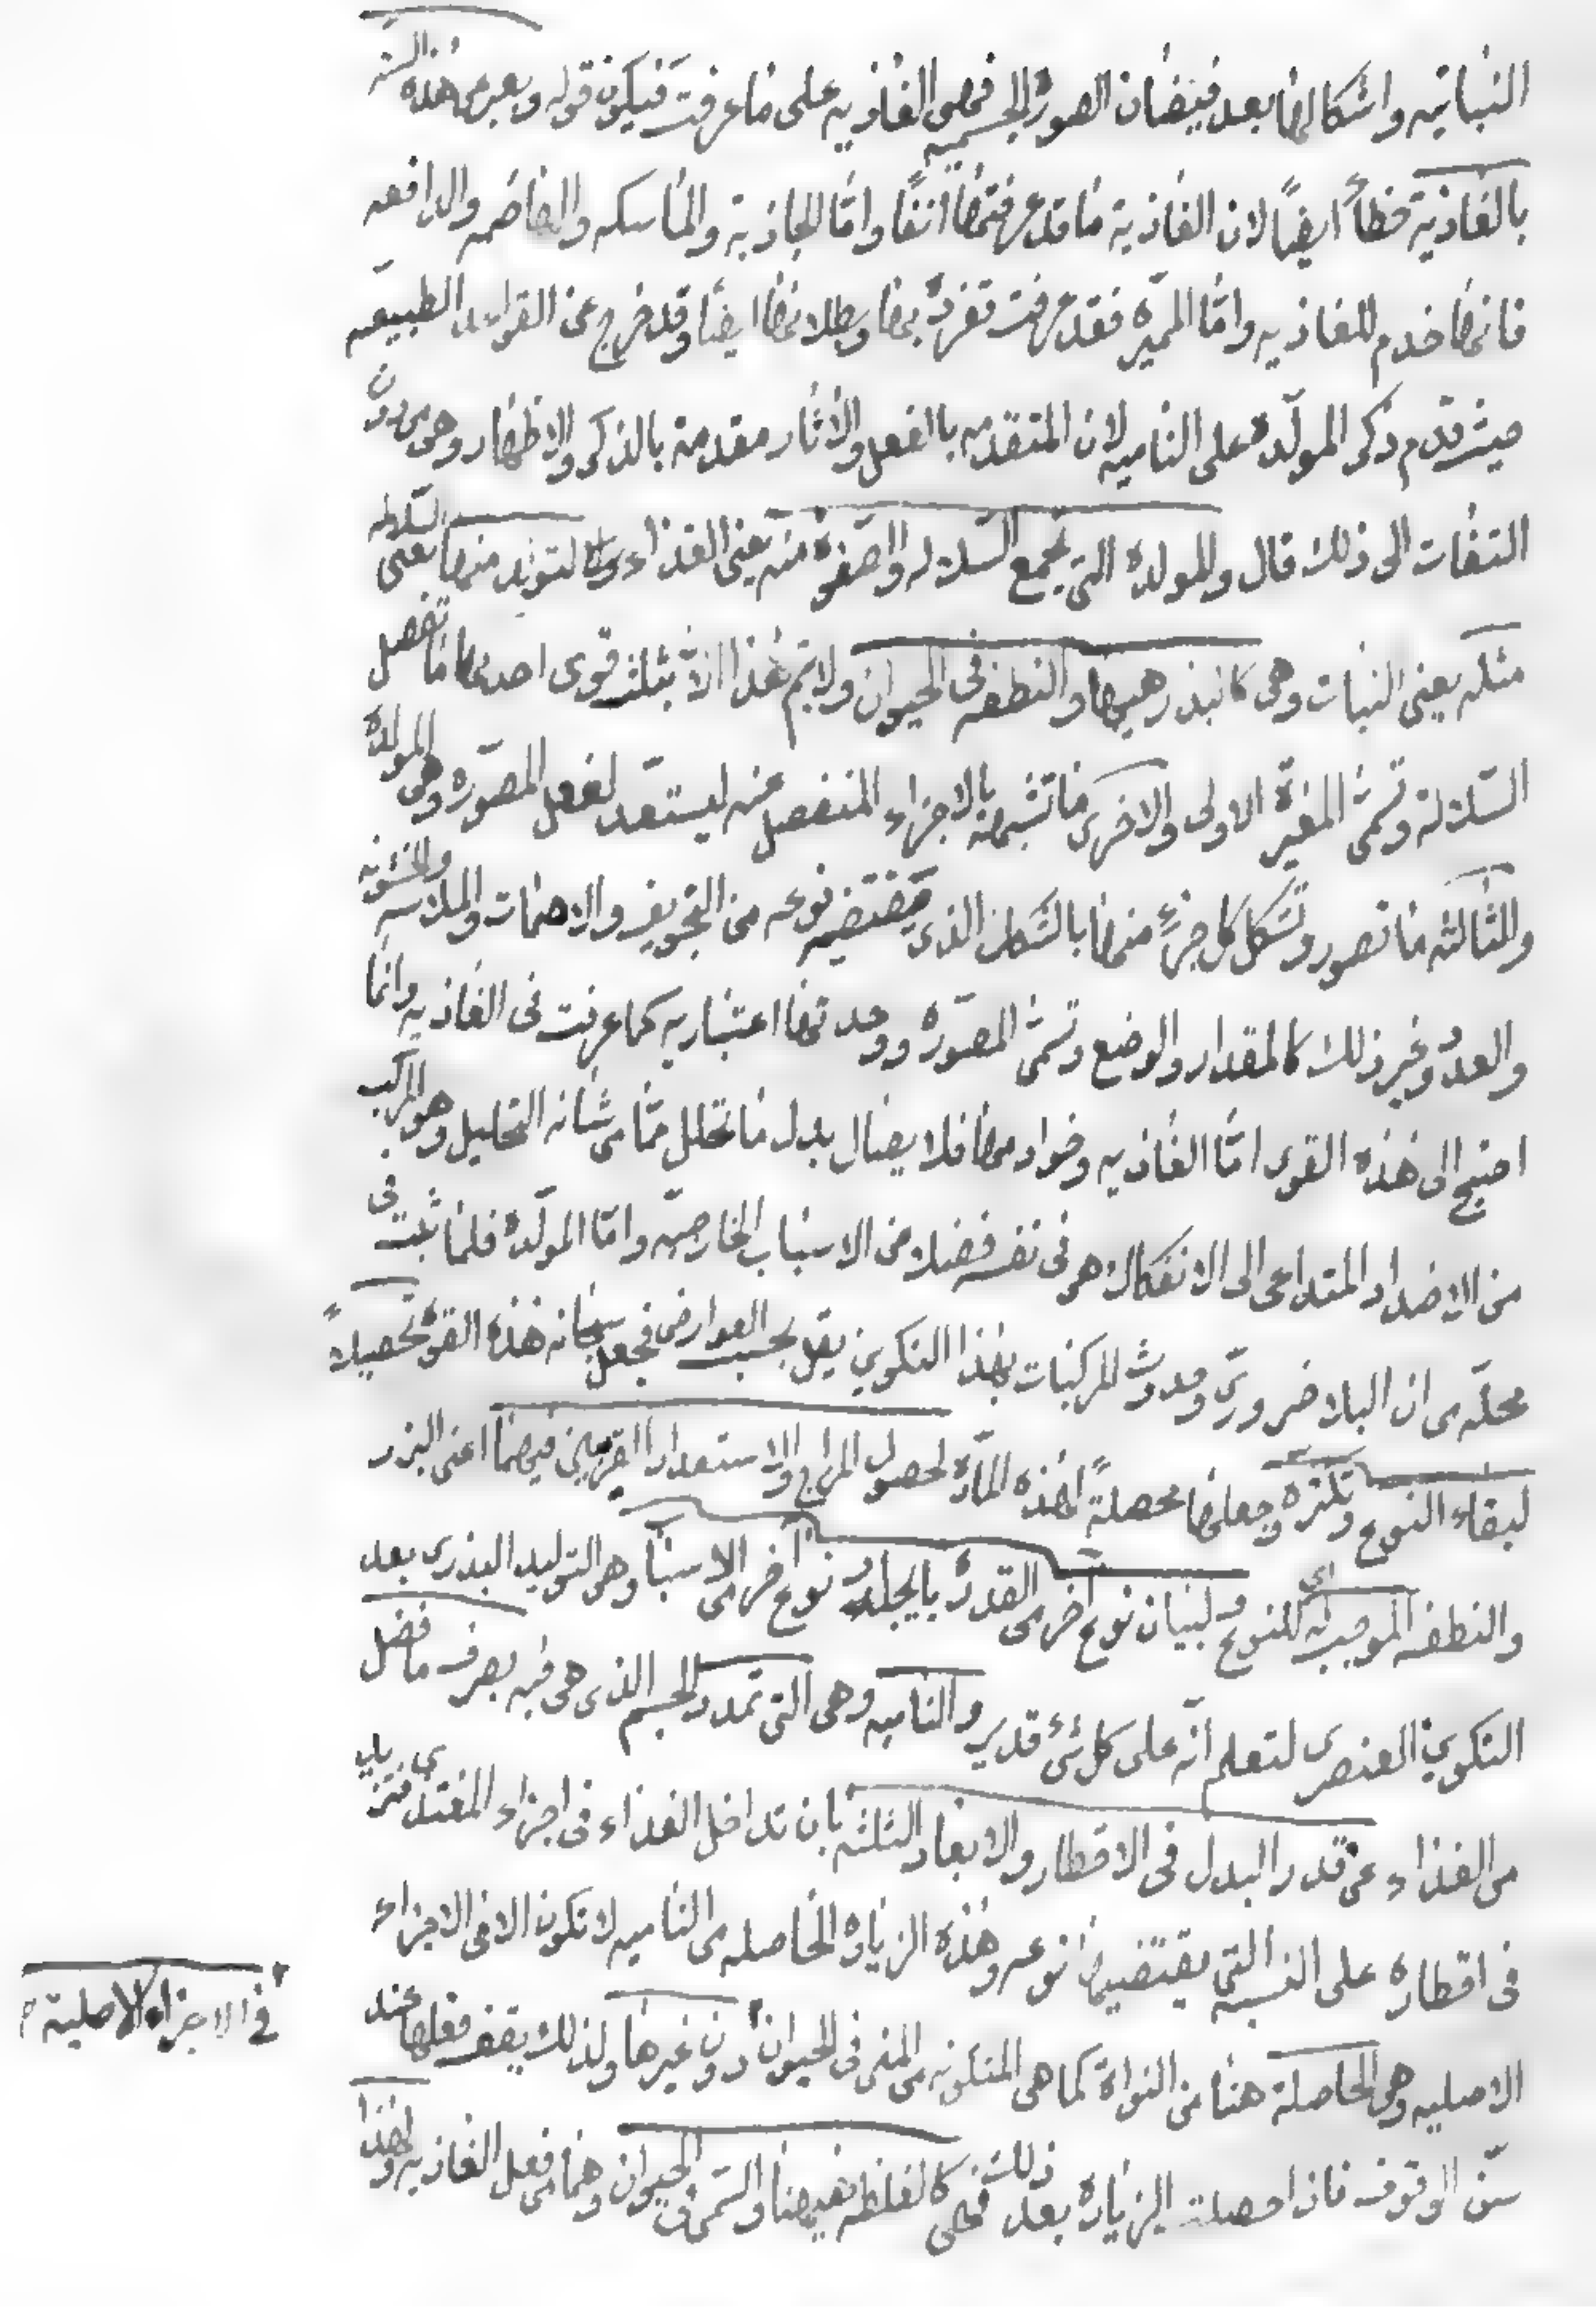 النباتيه واشكالها بعد فيضان الصورة الجسميه فهى الغاذيه على ما عرفت فيكون قوله ويعبر عن هذه الستة
بالغاذية خطأ ايضاً لان الغاذية ما قد عرفتها انفا واما الجاذبة والماسكه والهاضمه والدافعه
فانها خدم للغاذيه واما المميزة فقد عرفت تفرده بها وبطلانها ايضا وقد خرج عن القواعد الطبيعه
حيث قدم ذكر المولّدة على الناميه لان المتقدمه بالفعل والاثار مقدمة بالذكر والاظهار وحرى دون
التفات الى ذلك قال والمولده التى تجمع السلاله والصفوة منه يعنى الغذاء لتوليد منها يعنى السلاله
مثله يعنى النبات وهى كالبذر هيهنا والنطفه فى الحيوان ولا يتم هذا الا بثلث قوى احديها ما تفصل
السلالة وتسمى المغيرة الاولى والاخرى ما تشبهه بالاجزاء المنفصل عنه ليستعد لفعل المصورة وهى المولدة
والثالثه ما تصور وتشكل كل جزء منها بالشكل الذى يقتضيه نوعه من التجويف والاصمات والملاسه والخشونه
والعدد وغير ذلك كالمقدار والوضع وتسمى المصوره ووحدتها اعتباريه كما عرفت فى الغاذيه وانما
احتيج الى هذه القوى اما الغاذيه وخوادمها فلايصال بدل ما تحلل مما من شانه التحليل وهو المركب
من الاضداد المتداعى الى الانفكاك هو فى نفسه فضلا من الاسباب الخارجيه واما المولّدة فلما ثبت فى
محله من ان البلا ضرورى وحدوث المركبات بهذا التكوين يقل بحسب العوارض فجعل سبحانه هذه القوة تحصيلاً
لبقاء النوع وتكثره وجعلها محصلةً لهذه المادّة لحصول المزاج والاستعداد القريبين فيهما اعنى البزر
والنطفه الموجب له اى للنوع ولبيان نوع اخر من القدرة بايجاد نوع اخر من الاسباب وهو التوليد البذرى بعد
التكوين العنصرى لتعلم انه على كل شئ قدير والناميه وهى التى تمدد الجسم الذى هى فيه بصرف ما فضل
من الغذاء عن قدر البدل فى الاقطار والابعاد الثلثه بان تداخل الغذاء فى اجزاء المغتذى فتزيد
فى اقطاره على النسبه التى يقتضيها نوعه وهذه الزيادة الحاصله من الناميه لا تكون الا فى الاجزاء
الاصليه وهى الحاصلة هنا من النواة كما هى المتكونه من المنى فى الحيوان دون غيرها ولذلك يقف فعلها عند
سن الوقوف فاذا حصلت الزيادة بعد ذلك فهى كالغلظ هيهنا والسمن فى الحيوان وهما من فعل الغاذيه ولهذا
فى الاجزاء الاصلية